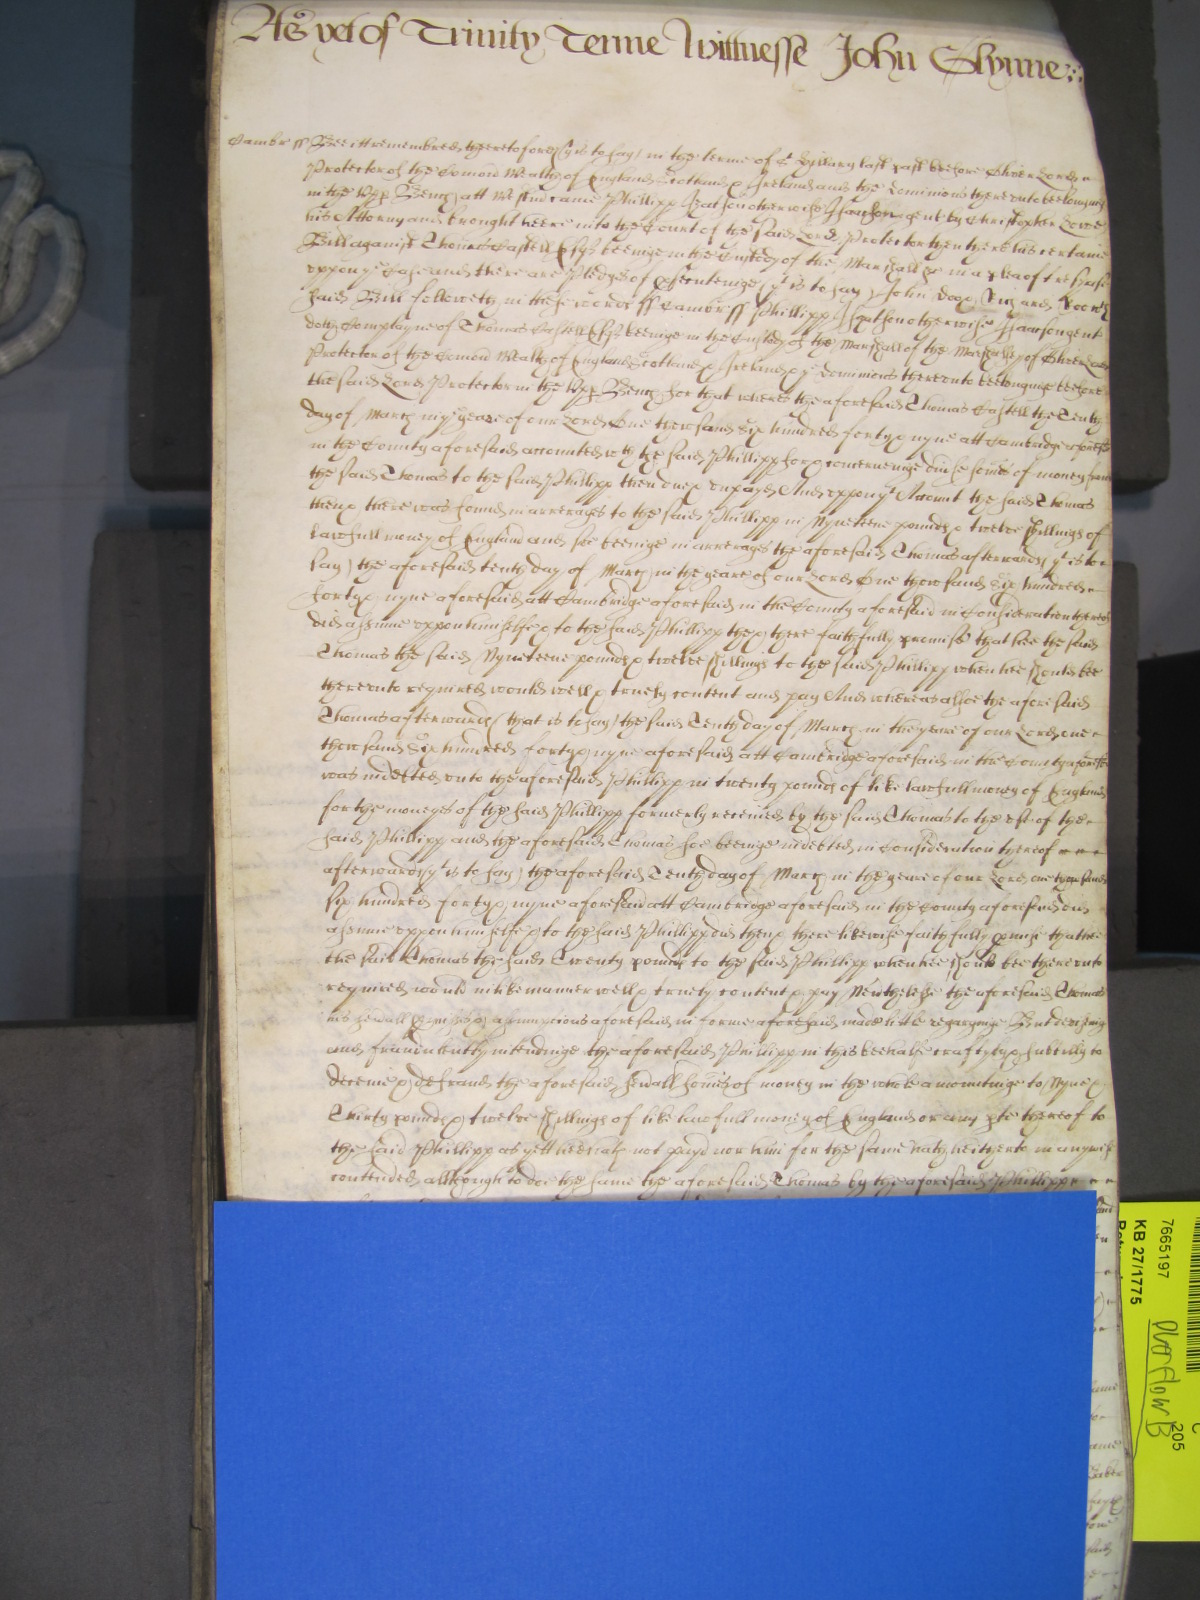 As yet of Trinity Terme Wittnesse John Glynne
Cambr ss Bee itt remembred that heretofore (yt is to say) in the terme of St Hillary last past beefore Oliver Lord
Protector of the Comon Wealth of England Scotland & Ireland and the Dominions thereunto beelonging
in the Upp Bench att Westm came Phillipp Isaacson gent by Christopher Lowe
his Attorny and brought heere into the Court of the said Lord Protector then there his certaine
Bill against Thomas Castell Esqr beeinge in the Custody of the Marshall &c in a plea of trespasse
uppon ye Case and there are Pledges of psecutinge (yt is to say) John Doo & Richard Roo wch
said Bill followeth in these words ss Cambr ss Phillipp otherwise Isaacson gent
doth Complayne of Thomas Castell Esqr beeinge in the Custody of the Marshall of the Marshalsy of Oliver Lord
Protector of the Comon Wealth of England Scotland & Ireland & ye Dominions thereunto beelonginge beefore
the said Lord Protector in the Upp Bench for that wheras the aforesaid Thomas Castell the Tenth
day of March in ye yeare of our Lord One thowsand six hundred forty & nyne att Cambridge
in the County aforesaid accounted wth the said Phillipp for & concerneinge divse somes of money from
the said Thomas to the said Phillipp then due & unpayd And uppon yt Account the said Thomas
then & there was found in arrerages to the said Phillipp in Nyneteene pounds & twelve shillings of
lawfull money of England and soe beeinge in arrerages the aforesaid Thomas afterwards (yt is to
say) the aforesaid tenth day of March in the yeare of our Lord One thowsand six hundred
forty & nyne aforesaid att Cambridge aforesaid in the County aforesaid in Consideration thereof
did assume uppon himselfe & to the said Phillipp then & there faithfully promise that hee the said
Thomas the said Nyneteene pounds & twelve shillings to the said Phillipp when hee should bee
thereunto required would well & truely content and pay And whereas alsoe the aforesaid
Thomas afterwards (that is to say) the said Tenth day of March in the yeare of our Lord one
thowsand six hundred forty & nyne aforesaid att Cambridge aforesaid in the County aforesaid
was indebted unto the aforesaid Phillipp in twenty pounds of like lawfull money of England
for the moneyes of the said Phillipp formerly receined by the said Thomas to the use of the
said Phillipp and the aforesaid Thomas soe beeinge indebted in Consideration thereof
afterwards (yt is to say) the aforesaid Tenth day of March in the yeare of our Lord one thowsand
six hundred forty & nyne aforesaid att Cambridge aforesaid in the County aforesaid did
assume uppon himselfe & to the said Phillipp did then & there likewise faithfully pmise that hee
the said Thomas the said Twenty pounds to the said Phillipp when hee should bee thereunto
required would in like manner well & truely content & pay Neverthelesse the aforesaid Thomas
his sevall pmises & assumpcions aforesaid in forme aforesaid made little regardinge But
and fraudulently intendinge the aforesaid Phillipp in this beehalfe craftyly & subtilly to
deceive & defraud the aforesaid sevall somes of money in the whole amountinge to Nyne &
Thirty pounds & twelve shillings of like lawfull money of England or any pte thereof to
the said Phillipp as yett hee hath not payd nor him for the same hath heitherto in any wise
contended allthough to doe the same the aforesaid Thomas by the aforesaid Phillipp
7665197
KB 27/1775
Overflow B
205